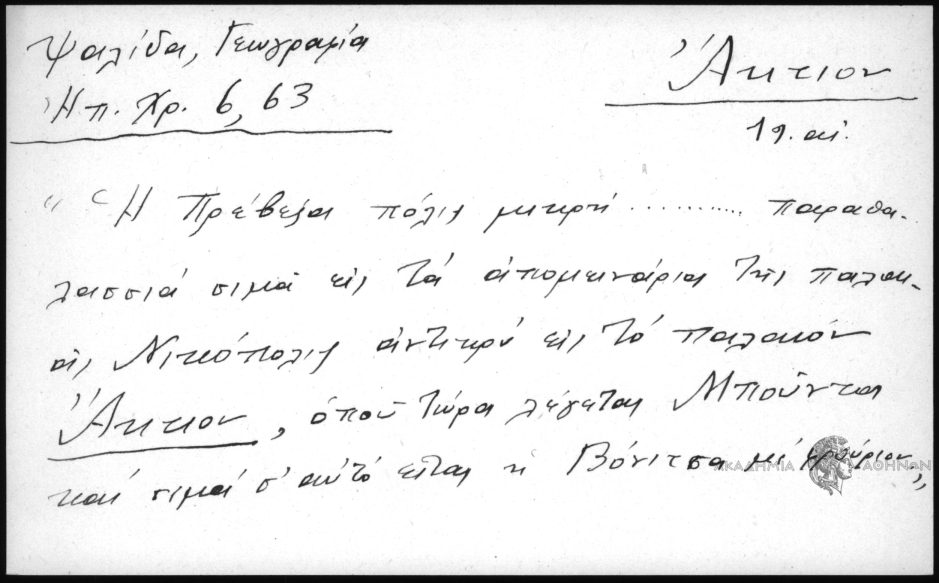 Ψαλίδα, Γεωγραφία
Ἠπ. Χρ. 6, 63
Ἄκτιον
19. αἰ.
"Ἡ Πρέβεζα πόλις μικρή ........... παραθα-
λασσιά σιμά εἰς τά ἀπομεινάρια τῆς παλαι-
ᾶς Νικόπολις ἀντικρύ εἰς τό παλαιόν
Ἄκτιον, ὁπού τώρα λέγεται Μπούντα
καί σιμά σ' αὐτό εἶται ἡ Βόνιτσα μέ φρούριον"
ΑΚΑΔΗΜΙΑ ΑΘΗΝΩΝ